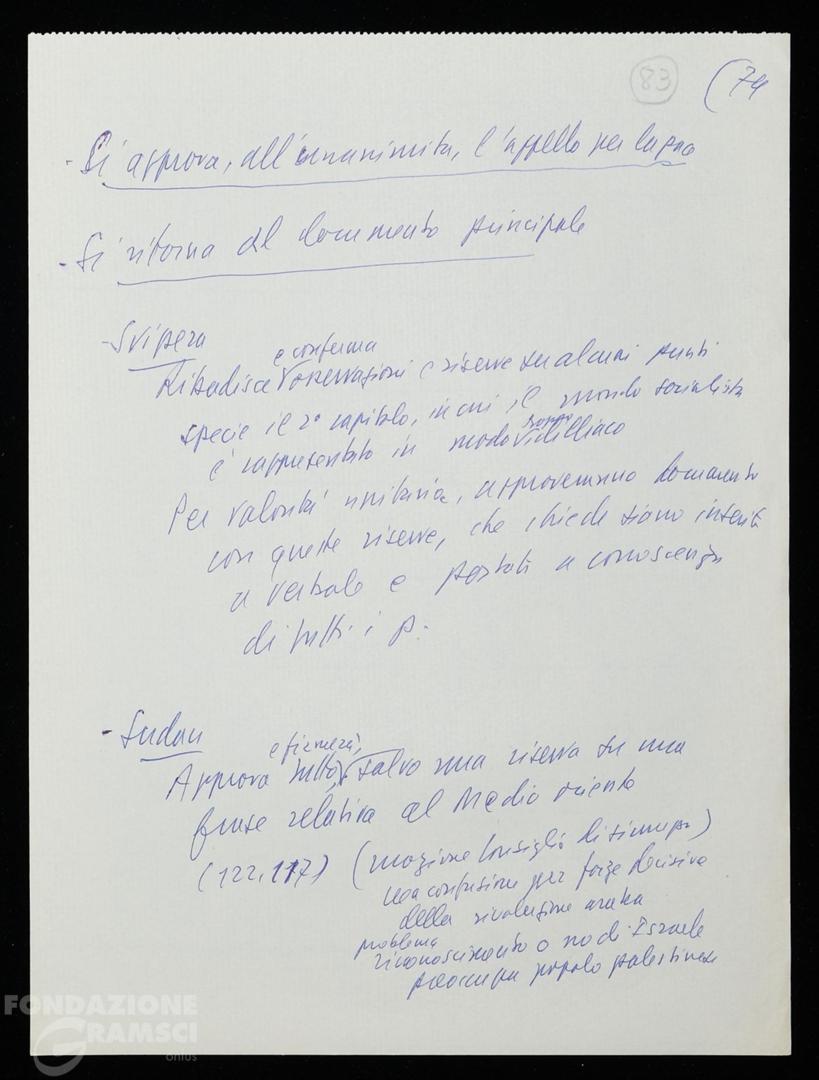 83
(74
- Si approva, all'unanimità, l'appello per la pace
- Si ritorna al documento principale
- Svizzera
e conferma
Ribadisce osservazioni e riserve su alcuni punti
specie il 2° capitolo, in cui il mondo socialista
troppo
è rappresentato in modo idilliaco
Per volontà unitaria, approveranno documento
con queste riserve, che chiede siano inserite
a verbale e portate a conoscenza
di tutti i p.
- Sudan
e firmerà,
Approva tutto, salvo una riserva su una
frase relativa al Medio oriente
(122, 117) (mozione Consiglio di sicurezza)
crea confusione per forze decisive
della rivoluzione araba
problema
riconoscimento o no di Israele
preoccupa popolo palestinese
FONDAZIONE
GRAMSCI
onlus